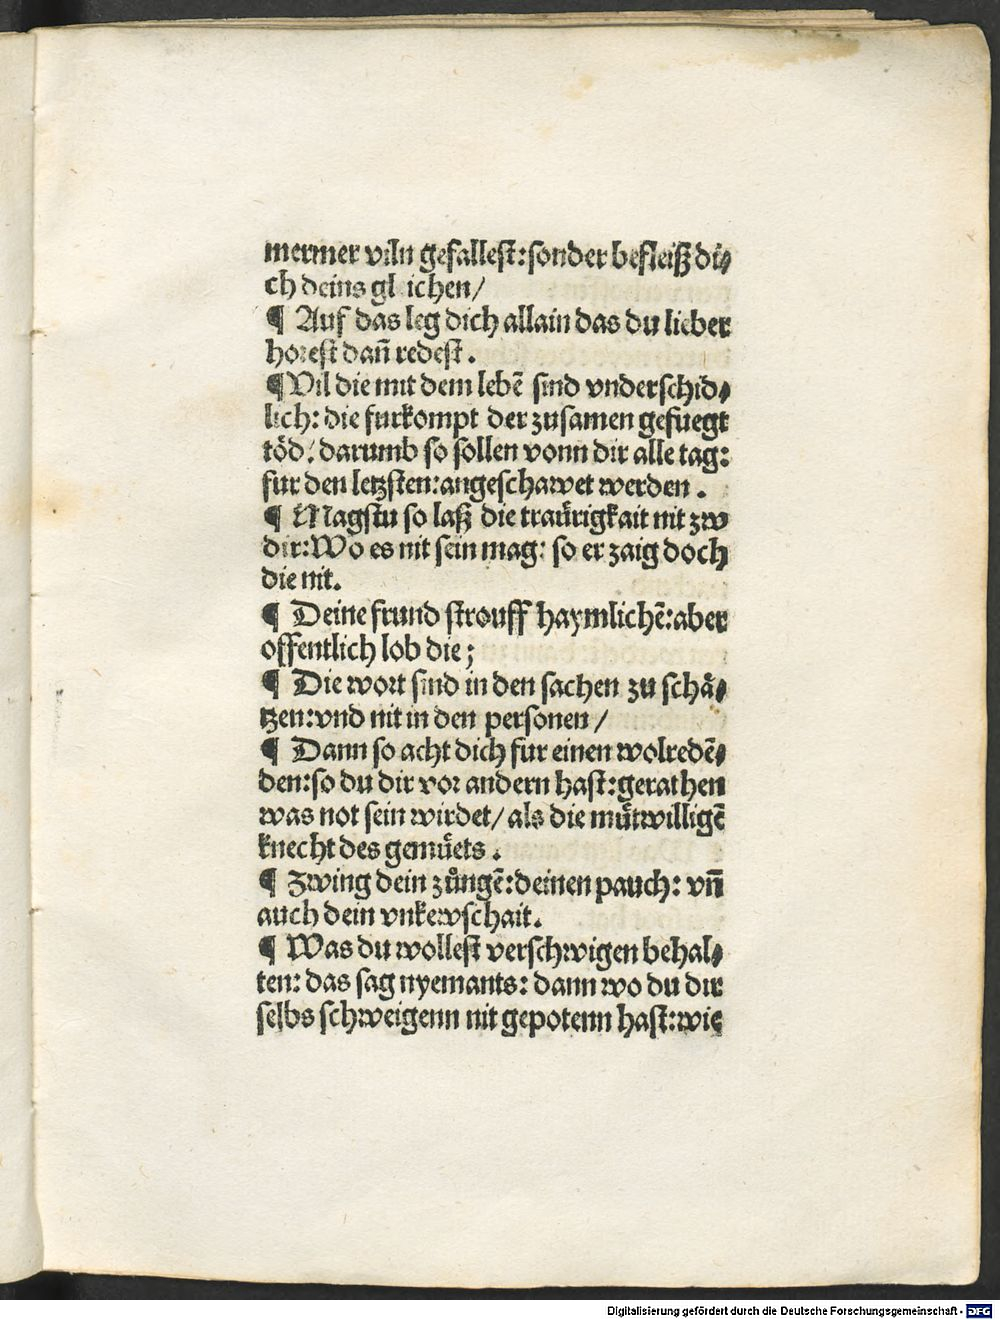 mermer viln gefallest: sonder befleiß di⸗
ch deins gl ichen/
¶ Auf das leg dich allain das du lieber
horest dañ redest.
¶ Vil die mit dem lebē sind vnderschid⸗
lich: die furkompt der zusamen gefuegt
töd: darumb so sollen vonn dir alle tag:
fur den letzsten: angeschawet werden.
¶ Magstu so laß die traurigkait nit zw
dir: Wo es nit sein mag: so er zaig doch
die nit.
¶ Deine frund strouff haymlichē: aber
offentlich lob die;
¶ Die wort sind in den sachen zu schä⸗
tzen: vnd nit in den personen/
¶ Dann so acht dich fur einen wolredē⸗
den: so du dir vor andern hast: gerathen
was not sein wirdet/ als die můtwilligē
knecht des gemůets.
¶ Zwing dein zůngē: deinen pauch: vñ
auch dein vnkewschait.
¶ Was du wollest verschwigen behal⸗
ten: das sag nyemants: dann wo du dir
selbs schweigenn nit gepotenn hast: wie
Digitalisierung gefördert durch die Deutsche Forschungsgemeinschaft - DFG